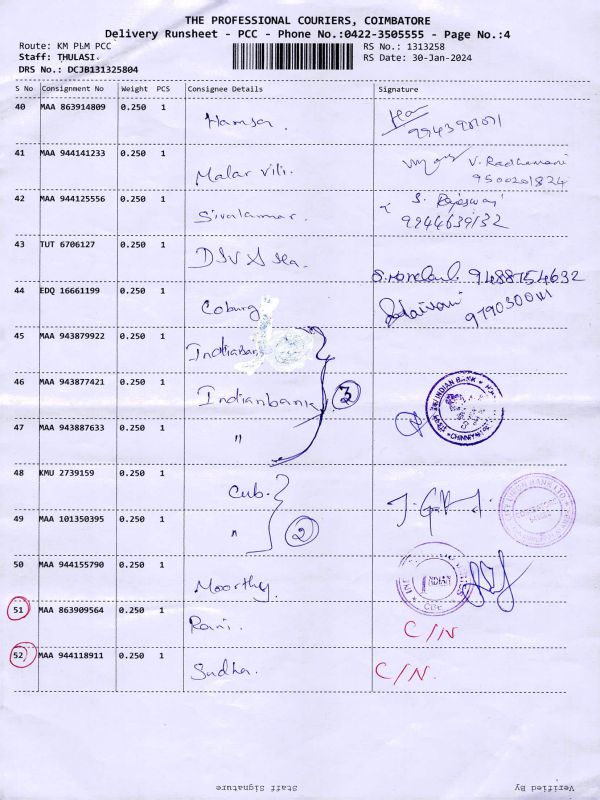 THE PROFESSIONAL COURIERS, COIMBATORE
Delivery Runsheet - PCC - Phone No.:0422-3505555 - Page No.:4
Route: KM PLM PCC
RS No.: 1313258
Staff: THULASI.
RS Date: 30-Jan-2024
DRS No.: DCJB131325804
S No Consignment No Weight PCS Consignee Details Signature
40 MAA 863914809 0.250 1 Hamsa.
41 MAA 944141233 0.250 1 Malar vili. V. Radhamani
9500201824
42 MAA 944125556 0.250 1 Sivalamar. S. Rajeswari
9944639132
43 TUT 6706127 0.250 1
9488754632
44 EDQ 16661199 0.250 1 Coburg
45 MAA 943879922 0.250 1 Indiabank
46 MAA 943877421 0.250 1 Indianbank 3 INDIAN BANK
47 MAA 943887633 0.250 1 "
48 KMU 2739159 0.250 1 Cub.
49 MAA 101350395 0.250 1 " 2
50 MAA 944155790 0.250 1 Moorthy. INDIAN CBE
51 MAA 863909564 0.250 1 Rani. C/N
52 MAA 944118911 0.250 1 Sudha. C/N.
Staff Signature Verified By